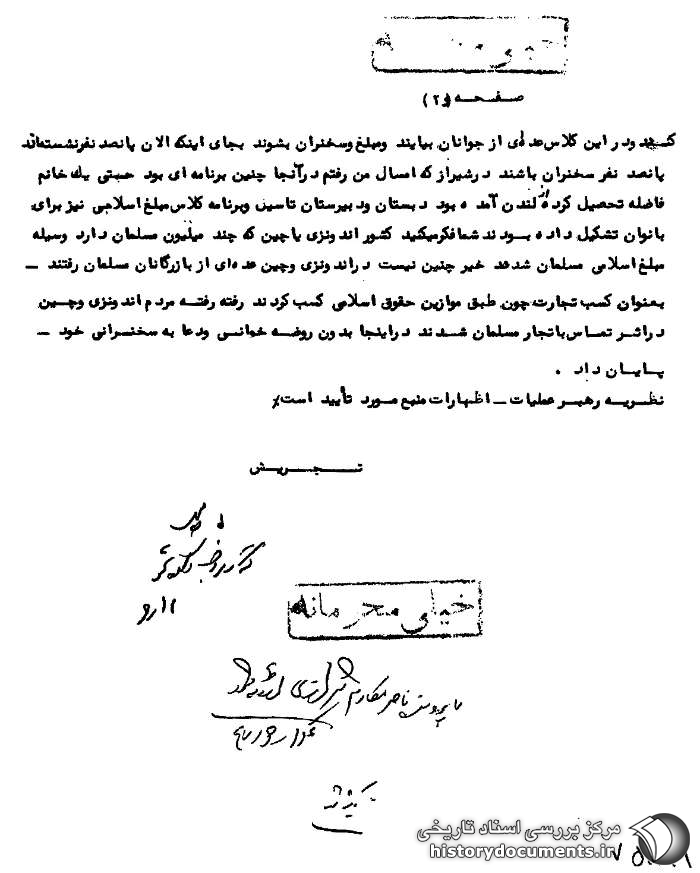 خیلی محرمانه
صفحه (۲)
کنید و در این کلاس عده‌ای از جوانان بیایند و مبلغ و سخنران بشوند بجای اینکه الان پانصد نفر نشسته‌اند
پانصد نفر سخنران باشند در شیراز که امسال من رفتم در آنجا چنین برنامه ای بود حتی یک خانم
فاضله تحصیل کرده از لندن آمده بود دبستان و دبیرستان تاسیس و برنامه کلاس مبلغ اسلامی نیز برای
بانوان تشکیل داده بودند شما فکر میکنید کشور اندونزی یا چین که چند میلیون مسلمان دارد وسیله
مبلغ اسلامی مسلمان شدند خیر چنین نیست در اندونزی و چین عده‌ای از بازرگانان مسلمان رفتند –
بعنوان کسب تجارت چون طبق موازین حقوق اسلامی کسب کردند رفته رفته مردم اندونزی و چین
در اثر تماس با تجار مسلمان شدند در اینجا بدون روضه خوانی و دعا به سخنرانی خود –
پایان داد .
نظریه رهبر عملیات – اظهارات منبع مورد تأیید است٪
تجریش
خیلی محرمانه
ناصر مکارم شیرازی
مرکز بررسی اسناد تاریخی
historydocuments.ir